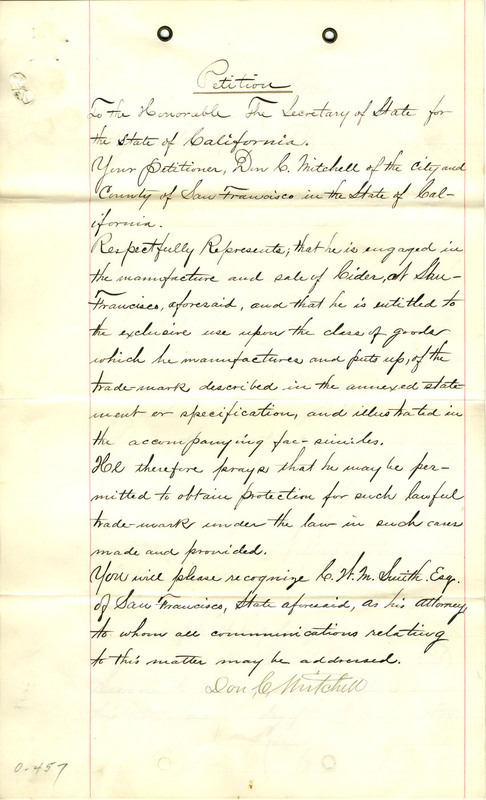 Petition
To the Honorable The Secretary of State for
the State of California.
Your petitioner, Don C. Mitchell of the city and
County of San Francisco in the State of Cal-
ifornia.
Respectfully Represents; that he is engaged in
the manufacture and sale of Cider, at San-
Francisco, aforesaid, and that he is entitled to
the exclusive use upon the class of goods
which he manufactures and puts up, of the
trade-mark described in the annexed state
ment or specification, and illustrated in
the accompanying fac-similes.
He therefore prays that he may be per-
mitted to obtain protection for such lawful
trade-mark under the law in such cases
made and provided.
You will please recognize C. W. M. Smith Esq.
of San Francisco, State aforesaid, as his attorney
to whom all communications relating
to this matter may be addressed.
Don C Mitchell
0-457